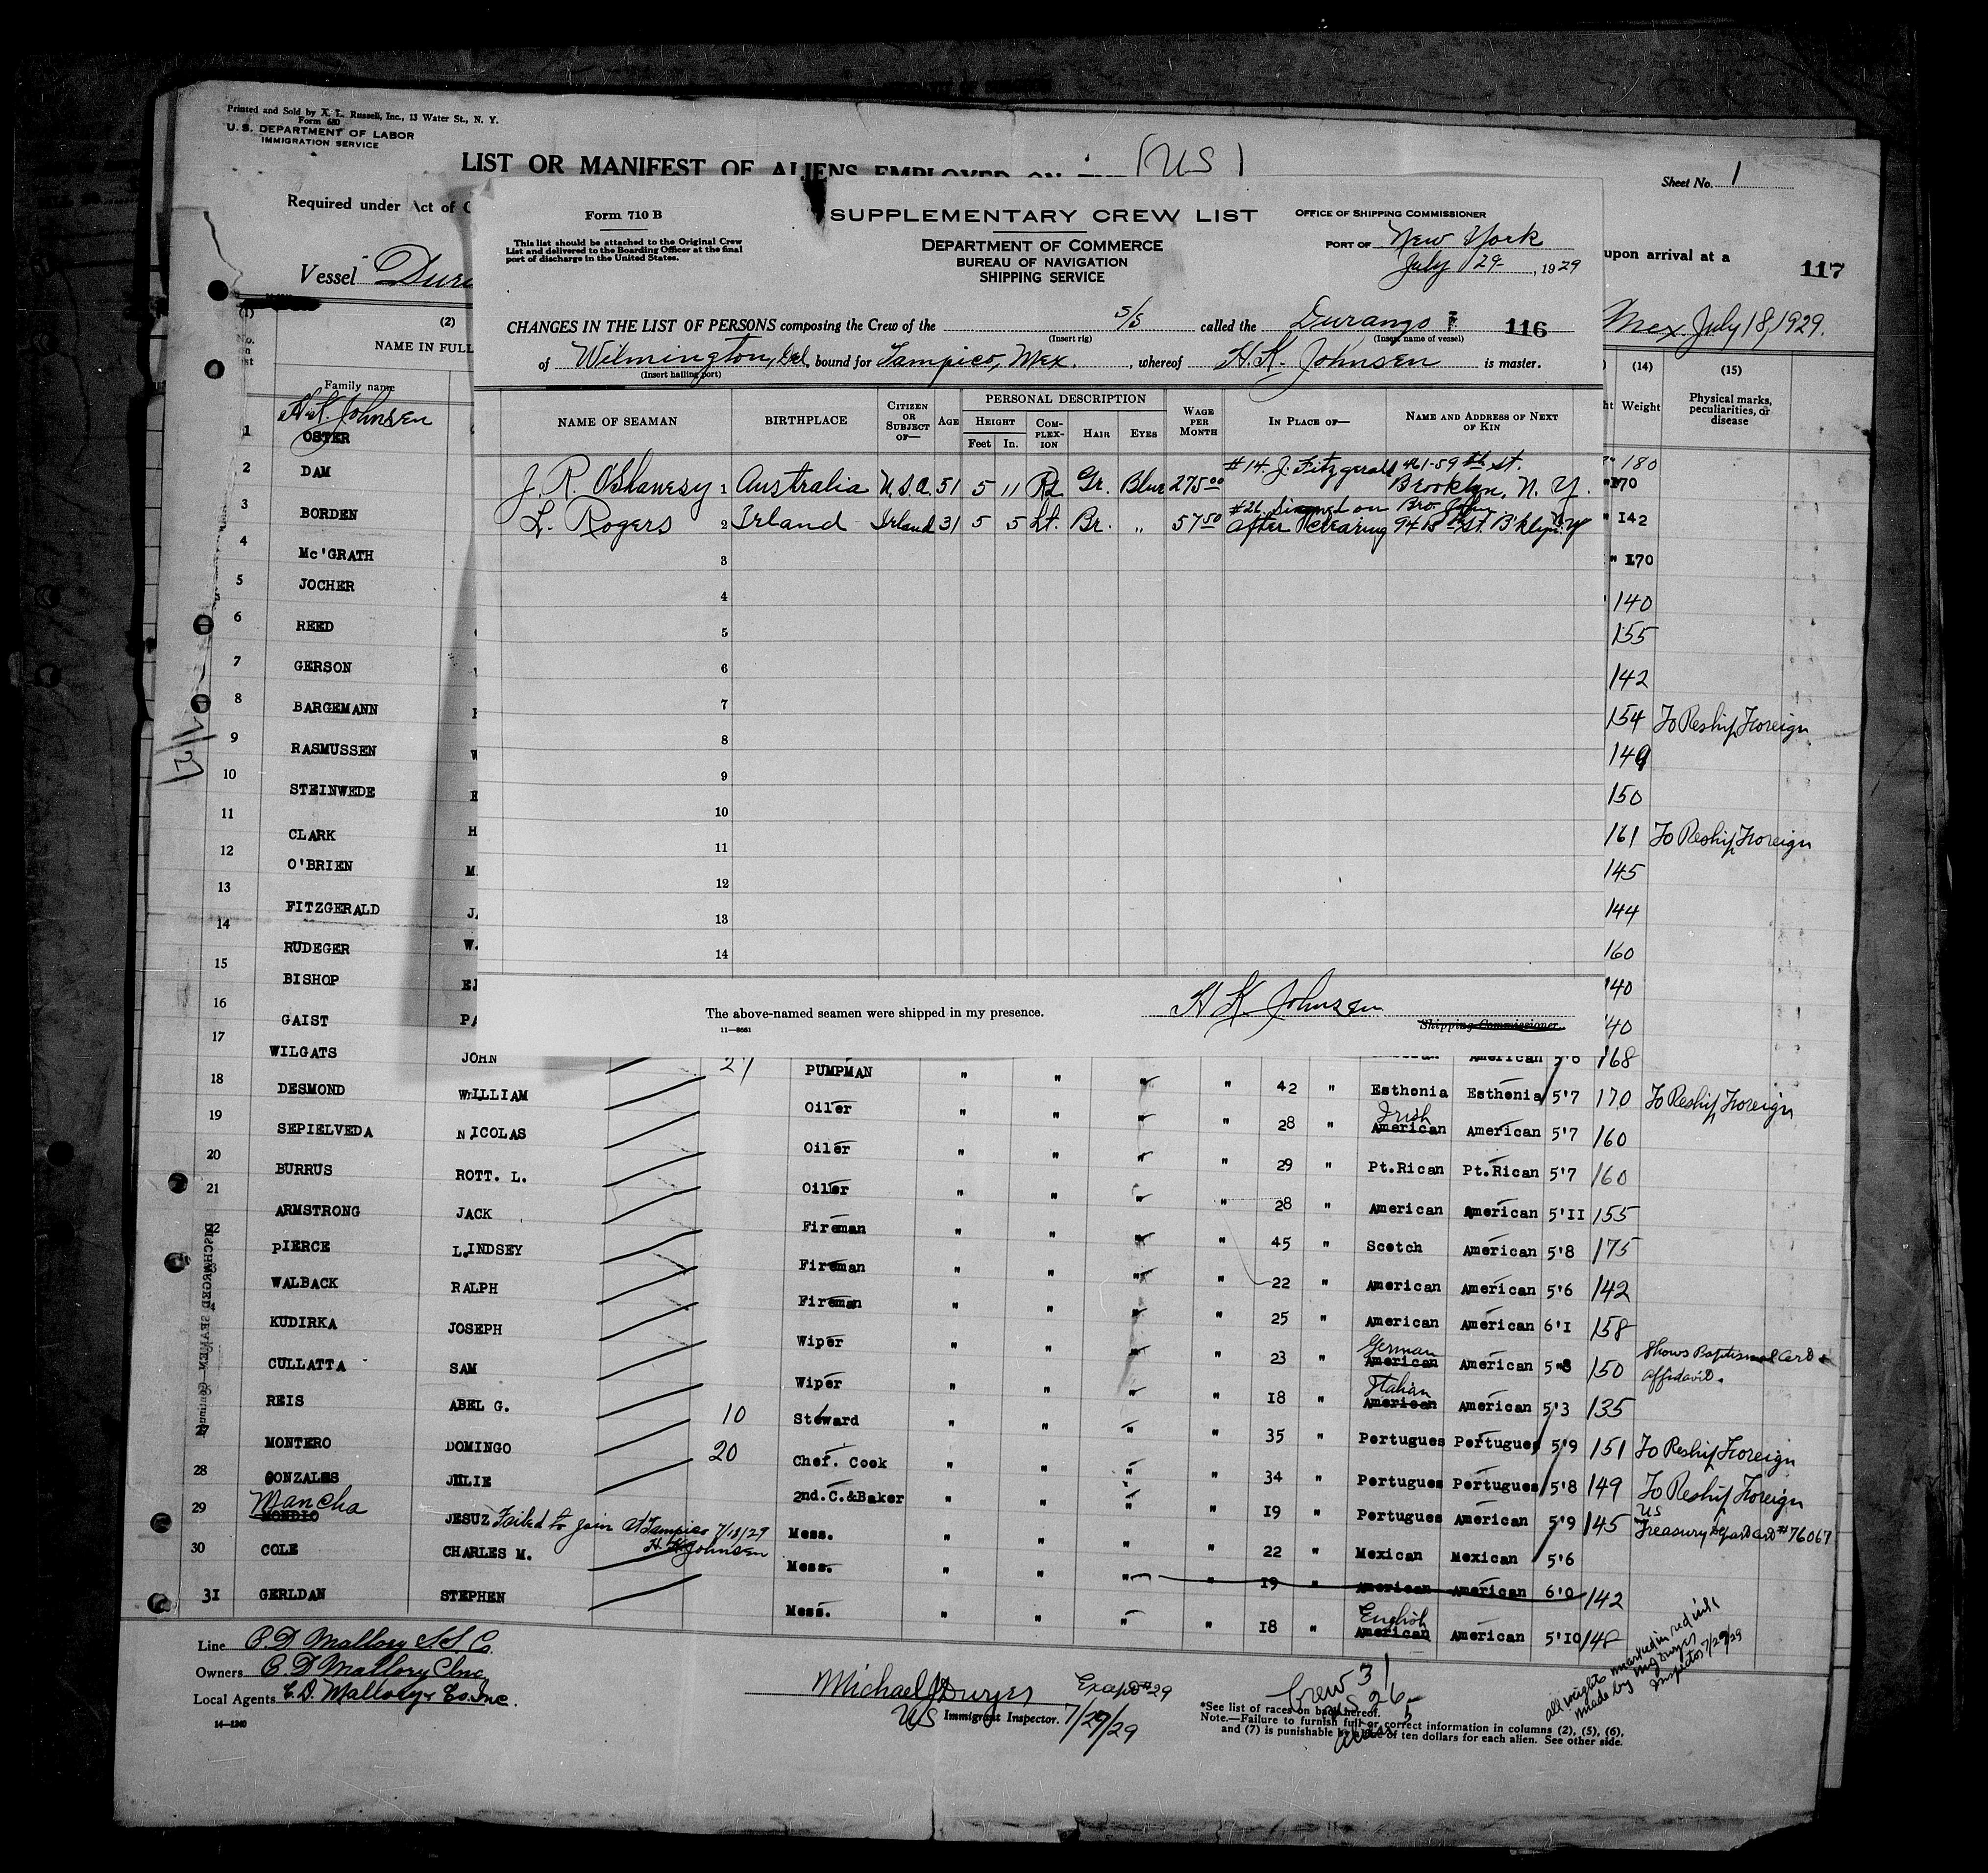 Printed and Sold by A. L. Russell, Inc., 13 Water St., N. Y.
Form 680
U. S. DEPARTMENT OF LABOR
IMMIGRATION SERVICE
LIST OR MANIFEST OF ALIENS EMPLOYED ON
(US)
Sheet No. 1
Required under Act of
upon arrival at a
117
Vessel
Mex. July 18, 1929.
Form 710 B
This list should be attached to the Original Crew
List and delivered to the Boarding Officer at the final
port of discharge in the United States.
SUPPLEMENTARY CREW LIST
DEPARTMENT OF COMMERCE
BUREAU OF NAVIGATION
SHIPPING SERVICE
OFFICE OF SHIPPING COMMISSIONER
PORT OF New York
July 29, 1929
CHANGES IN THE LIST OF PERSONS composing the Crew of the S/S called the Durango 116
(Insert rig) (Insert name of vessel)
of Wilmington, Del. bound for Tampico, Mex., whereof H. K. Johnsen is master.
(Insert hailing port)
NAME OF SEAMAN BIRTHPLACE CITIZEN OR SUBJECT OF— AGE PERSONAL DESCRIPTION HEIGHT Feet In. COMPLEXION HAIR EYES WAGE PER MONTH IN PLACE OF— NAME AND ADDRESS OF NEXT OF KIN
J. R. O'Shanesy 1 Australia U.S.A. 51 5 11 Rd. Gr. Blue 275.00 #14. J. Fitzgerald 461-59th St. Brooklyn, N. Y.
L. Rogers 2 Irland Irland 31 5 5 Lt. Br. " 57.50 #26 Signed on after clearing Bro. John St. B'klyn. N.Y.
3
4
5
6
7
8
9
10
11
12
13
14
The above-named seamen were shipped in my presence.
11—8651
H K Johnsen
Shipping Commissioner.
(2)
NAME IN FULL
Family name
H. K. Johnsen
(14) (15)
Weight Physical marks, peculiarities, or disease
1 OSTER 180
2 DAM 170
3 BORDEN " 142
4 Mc'GRATH " 170
5 JOCHER 140
6 REED 155
7 GERSON 142
8 BARGEMANN 154 To Reship Foreign
9 RASMUSSEN 149
10 STEINWEDE 150
11 CLARK 161 To Reship Foreign
12 O'BRIEN 145
13 FITZGERALD 144
14 RUDEGER 160
15 BISHOP 140
16 GAIST 140
American 5'6 168
17 WILGATS JOHN PUMPMAN " " " " 42 " Esthonia Esthonia 5'7 170 To Reship Foreign
18 DESMOND WILLIAM Oiler " " " " 28 " Irish American American 5'7 160
19 SEPIELVEDA NICOLAS Oiler " " " " 29 " Pt.Rican Pt.Rican 5'7 160
20 BURRUS ROTT. L. Oiler " " " " 28 " American American 5'11 155
21 ARMSTRONG JACK Fireman " " " " 45 " Scotch American 5'8 175
22 PIERCE LINDSEY Fireman " " " " 22 " American American 5'6 142
WALBACK RALPH Fireman " " " " 25 " American American 6'1 158
KUDIRKA JOSEPH Wiper " " " " 23 " German American American 5"8 150 Shows Baptismal Card & affidavit.
CULLATTA SAM Wiper " " " " 18 " Italian American American 5'3 135
REIS ABEL G. 10 Steward " " " " 35 " Portugues Portugues 5'9 151 To Reship Foreign
27 MONTERO DOMINGO 20 Chef. Cook " " " " 34 " Portugues Portugues 5'8 149 To Reship Foreign
28 GONZALES JULIE 2nd.C.&Baker " " " " 19 " Portugues American 5'9 145 US Treasury Depart Card #76067
29 Mancha MONDIO JESUZ Failed to join at Tampico 7/18/29 H. K. Johnsen Mess. " " " " 22 " Mexican Mexican 5'6
30 COLE CHARLES M. Mess. " " " " 19 " American American 6'0 142
31 GERLDAN STEPHEN Mess. " " " " 18 " English American American 5'10 148
DISCHARGED SEAMEN—Continued
Line C. D. Mallory S.S. Co.
Owners C. D Mallory Inc
Local Agents C. D. Mallory & Co. Inc.
14—1240
Michael J Dwyer
US Immigrant Inspector. 7/29/29
Crew 31
US 26
5
*See list of races on back hereof.
Note.—Failure to furnish full or correct information in columns (2), (5), (6),
and (7) is punishable by fine of ten dollars for each alien. See other side.
all weights marked in red ink
made by M J Dwyer
Inspector 7/29/29